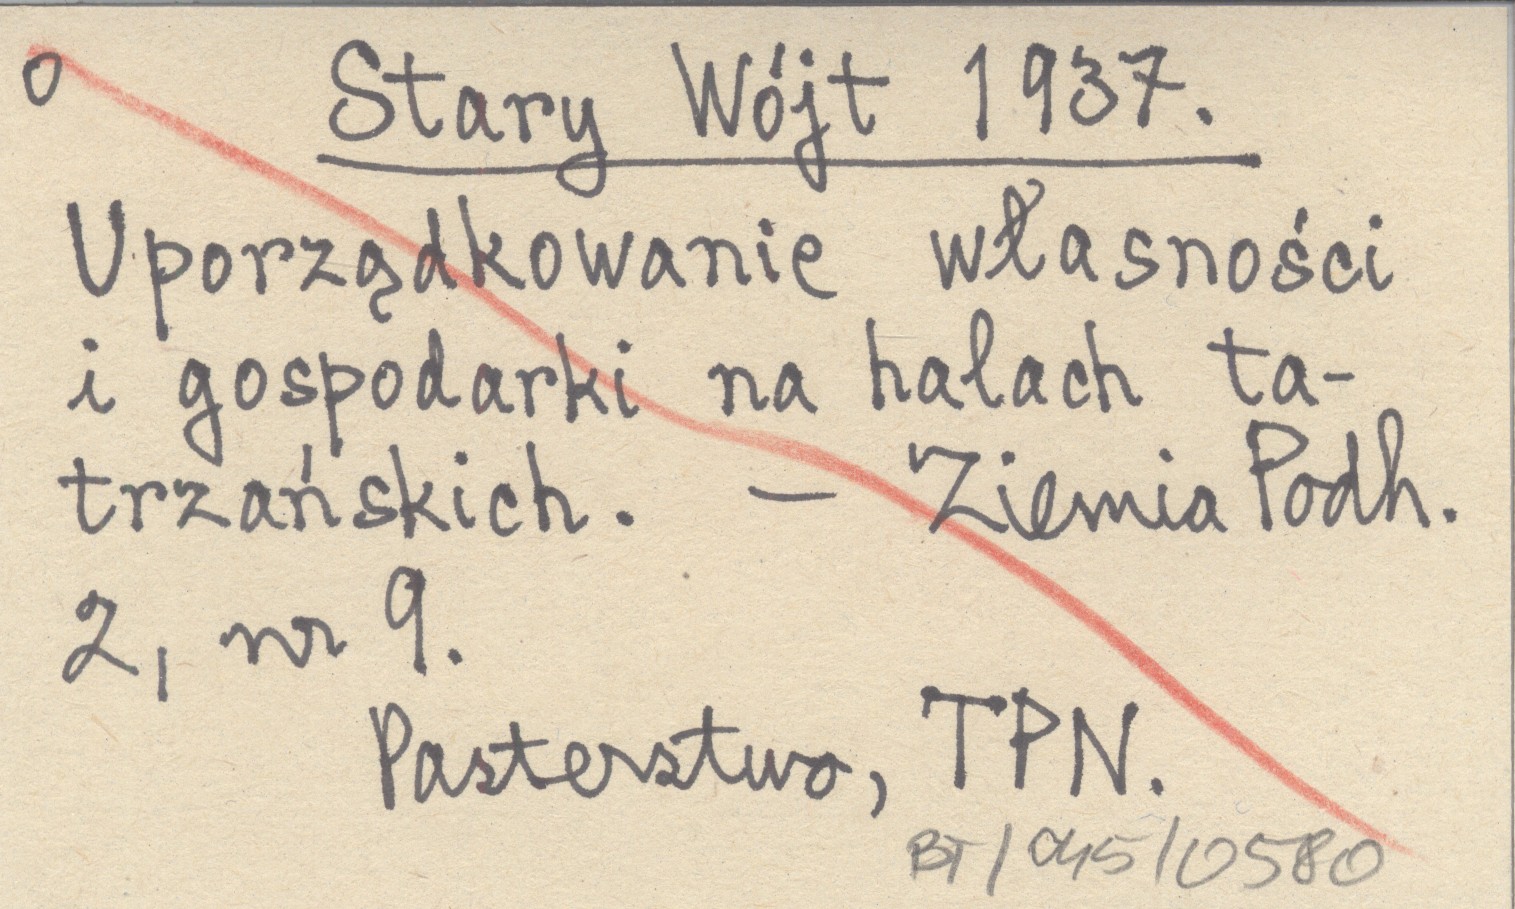 o Stary Wójt 1937.
Uporządkowanie własności
i gospodarki na halach ta-
trzańskich. — Ziemia Podh.
2, nr 9.
Pasterstwo, TPN.
BT/045/0580